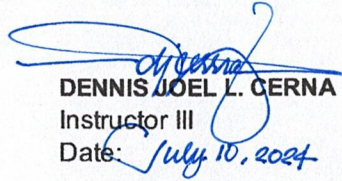 DENNIS JOEL L. CERNA
Instructor III
Date: July 10, 2024